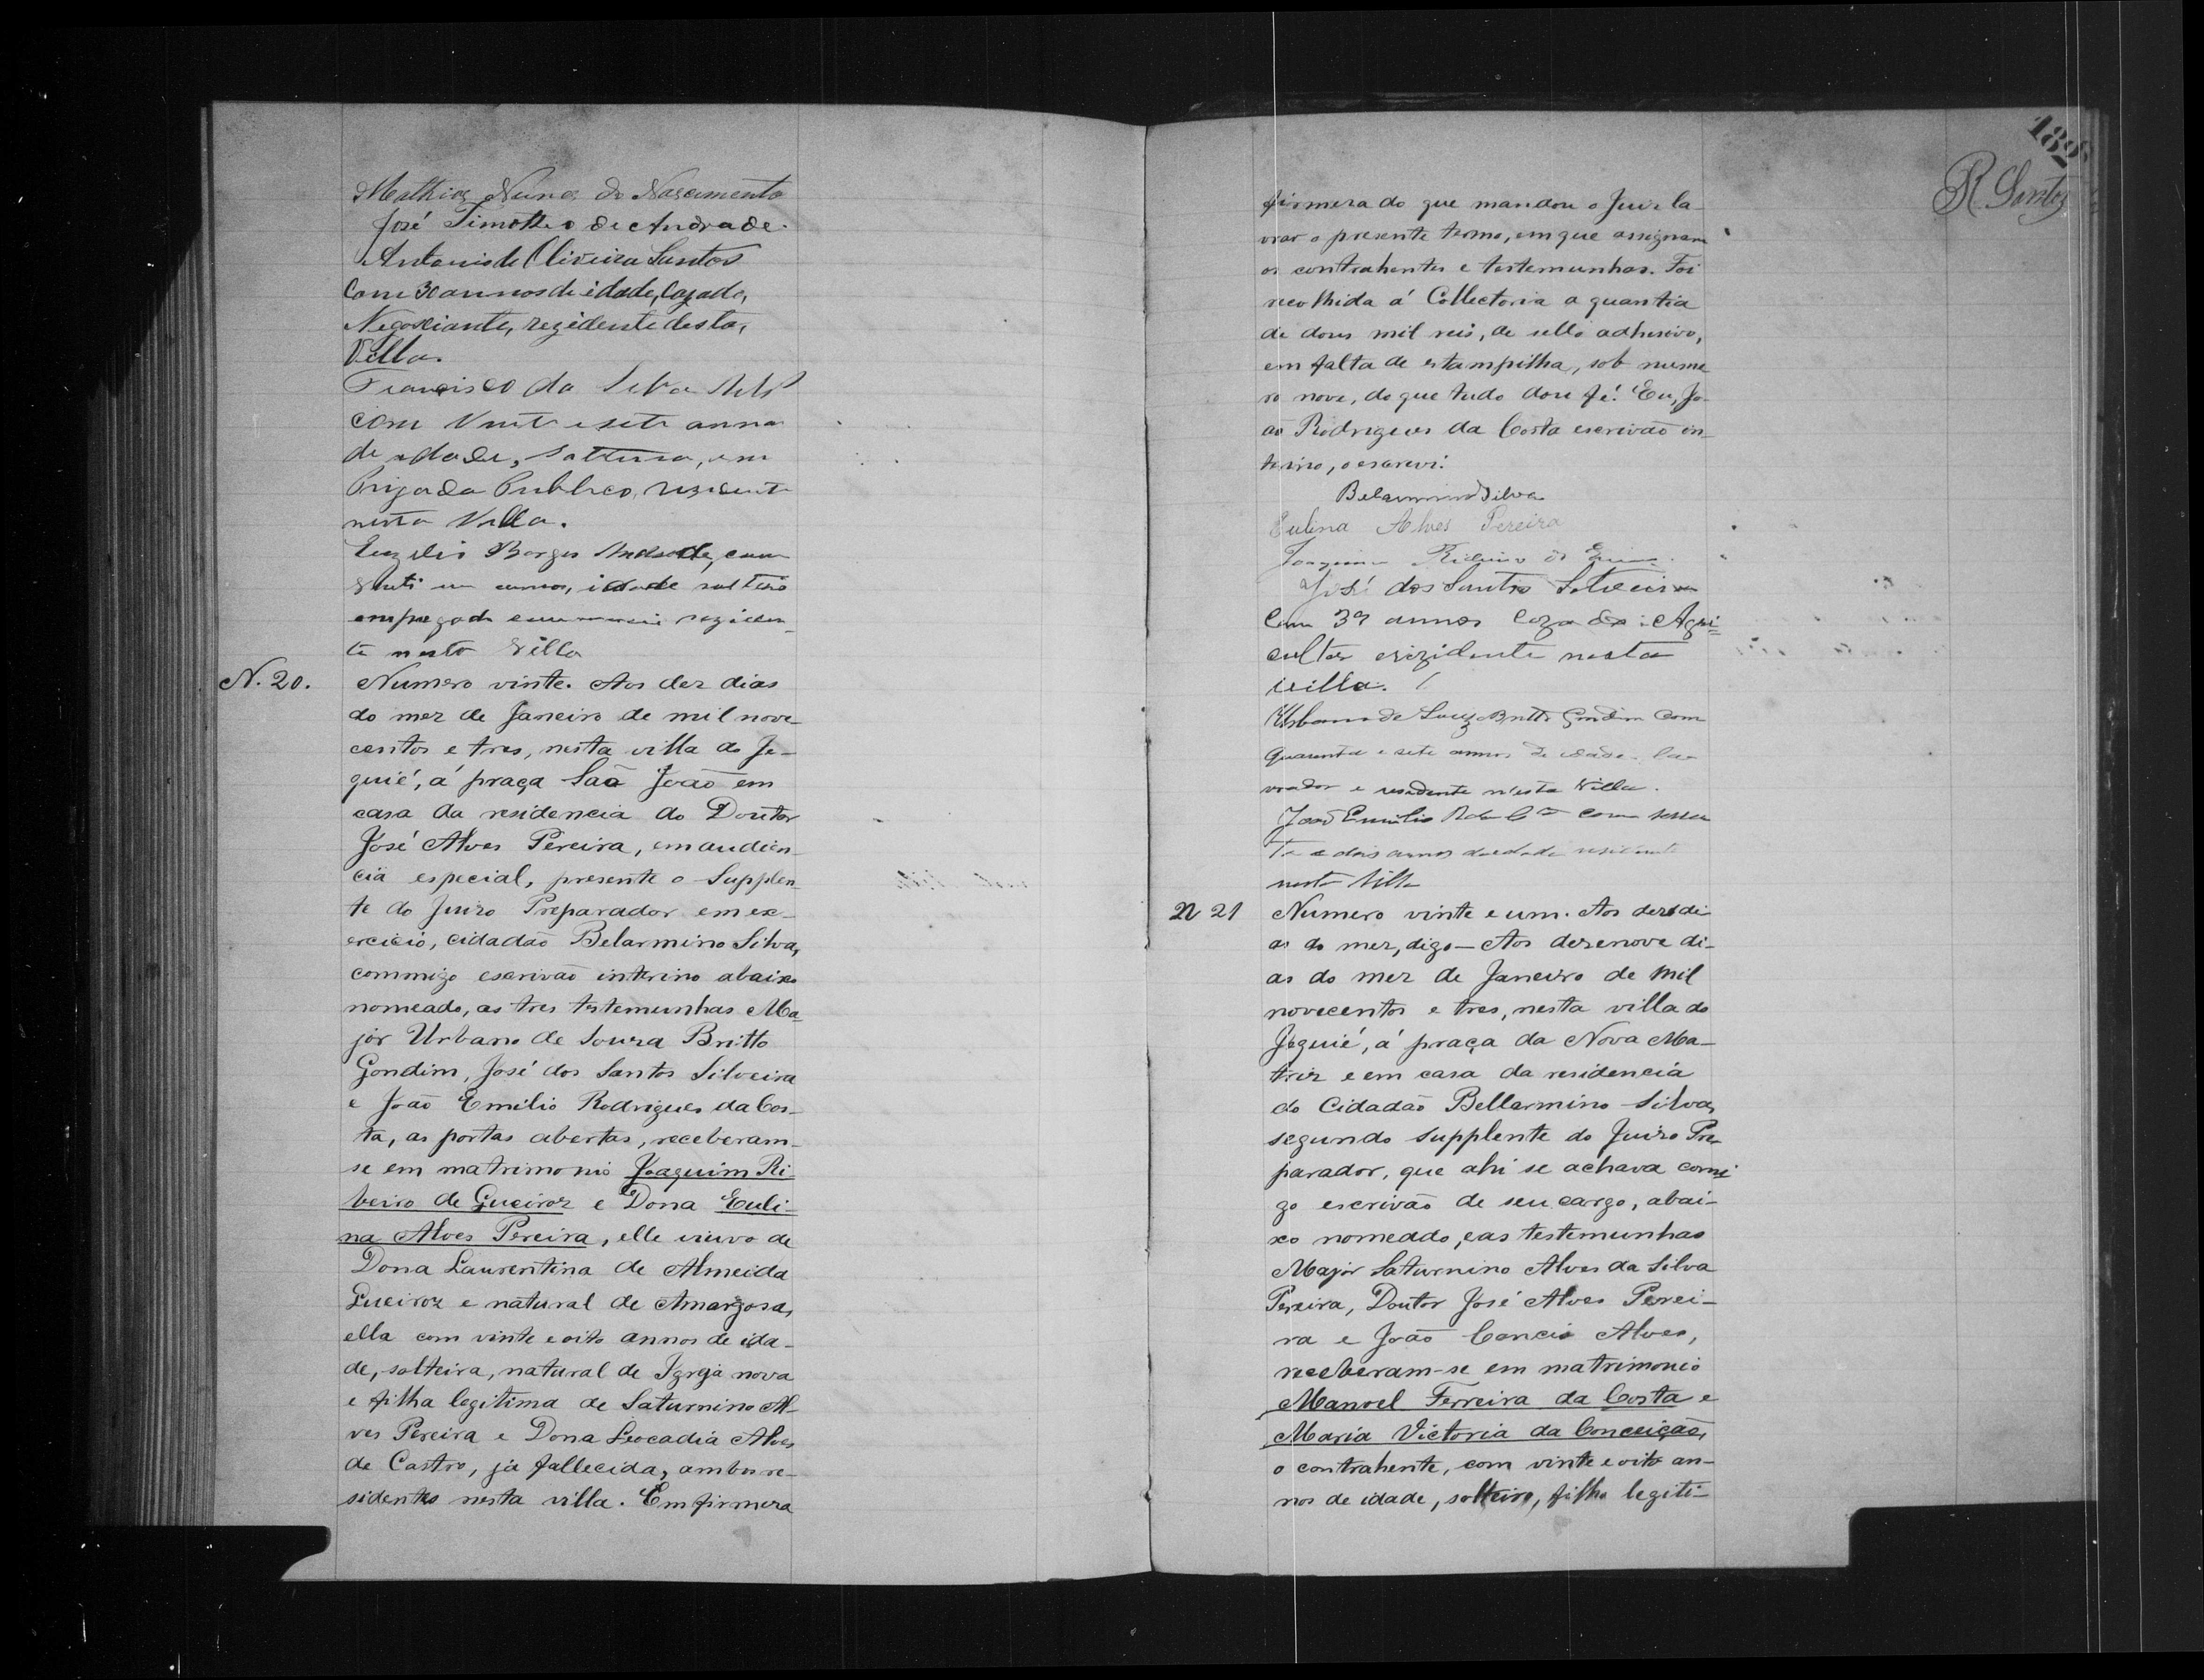 Mathias Nunes do Nascimento
José Timotheo de Andrade.
Antonio de Oliveira Santos
Com 30 annos de idade, Cazado,
Negosciante, rezidente desta,
Villa.
Francisco da Silva
com Vinte e sete annos
de edade, solteiro, em
Prigado Publico, residente
nesta Villa.
Borges Andrade, com
vinti um annos, idade solteiro
empregado commercio reziden
te nesta Villa
N. 20.
Numero vinte. Aos dez dias
do mez de Janeiro de mil nove-
centos e tres, nesta villa do Je-
quié, á praça São João em
casa da residencia do Doutor
José Alves Pereira, em audien-
cia especial, presente o Supplen-
te do Juizo Preparador em ex-
ercicio, cidadão Belarmino Silva,
commigo escrivão interino abaixo
nomeado, as tres testemunhas Ma-
jor Urbano de Souza Britto
Gondim, José dos Santos Silveira
e João Emilio Rodrigues da Cos-
ta, as portas abertas, receberam-
se em matrimonio Joaquim Ri-
beiro de Gueiroz e Dona Euli-
na Alves Pereira, elle viuvo de
Dona Laurentina de Almeida
Gueiroz e natural de Amargosa,
ella com vinte e oito annos de ida-
de, solteira, natural de Igreja nova
e filha legitima de Saturnino Al-
ves Pereira e Dona Leocadia Alves
de Castro, já fallecida, ambos re-
sidentes nesta villa. Em firmeza
182
R. Santos
firmeza do que mandou o Juiz la-
vrar o presente termo, em que assignam
os contrahentes e testemunhas. Foi
recolhida á Collectoria a quantia
de dous mil reis, de sello adhesivo,
em falta de estampilha, sob nume
ro nove, do que tudo dou fé. Eu, Jo-
ão Rodrigues da Costa escrivão in-
terino, o escrevi.
Belarmino Silva
Eulina Alves Pereira
Joaquim Ribeiro de
José dos Santos Silveira
Com 39 annos Cazado Agri=
cultor rezidente nesta
villa.
Urbano de Souza Britto Gondim com
quarenta e sete annos de idade, la-
vrador e residente n'esta Villa.
João Emilio com sessen
ta e dois annos de edade residente
nesta Villa
N 21
Numero vinte e um. Aos dez di
as do mez, digo — Aos dezenove di-
as do mez de Janeiro de mil
novecentos e tres, nesta villa do
Jequié, á praça da Nova Ma-
triz e em casa da residencia
do Cidadão Bellarmino Silva,
segundo supplente do Juizo Pre
parador, que ahi se achava comi
go escrivão de seu cargo, abai-
xo nomeado, e as testemunhas
Major Saturnino Alves da Silva
Pereira, Doutor José Alves Perei-
ra e João Cancio Alves,
receberam-se em matrimonio
Manoel Ferreira da Costa e
Maria Victoria da Conceição,
o contrahente, com vinte e oito an-
nos de idade, solteiro, filho legiti-